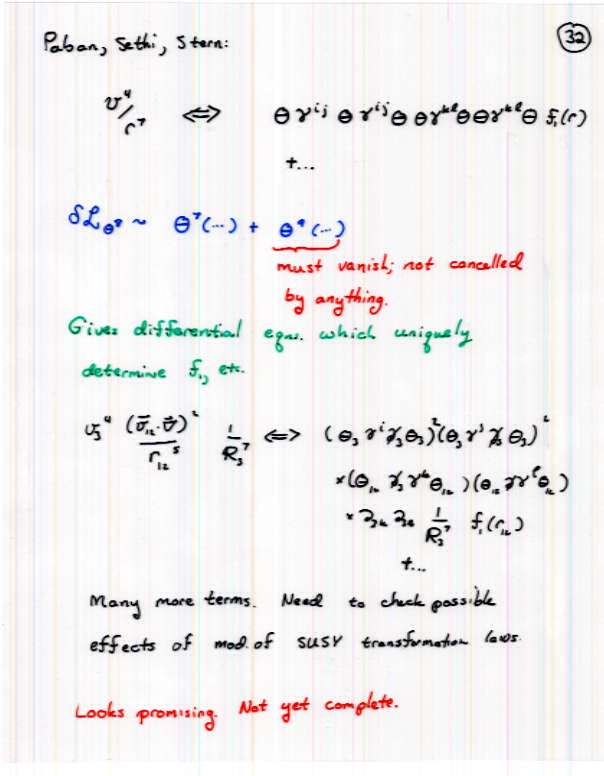 Paban, Sethi, Stern: 32
v⁴/r⁷ ⟺ θγⁱʲθγⁱʲθ θγᵏˡθθγᵏˡθ f₁(r)
+...
δL_θ⁸ ~ θ⁷(...) + θ⁹(...)
must vanish; not cancelled
by anything.
Gives differential eqns. which uniquely
determine f₁, etc.
v₃⁴ (v̄₁₂·v̄)²/r₁₂⁵ 1/R₃⁷ ⟺ (θ₃γⁱ∂̸₃θ₃)²(θ₃γʲ∂̸₃θ₃)²
×(θ₁₂ ∂̸₃γᵏθ₁₂)(θ₁₂ ∂̸γˡθ₁₂)
× ∂₃ₖ ∂₃ₗ 1/R₃⁷ f₁(r₁₂)
+...
Many more terms. Need to check possible
effects of mod. of SUSY transformation laws.
Looks promising. Not yet complete.